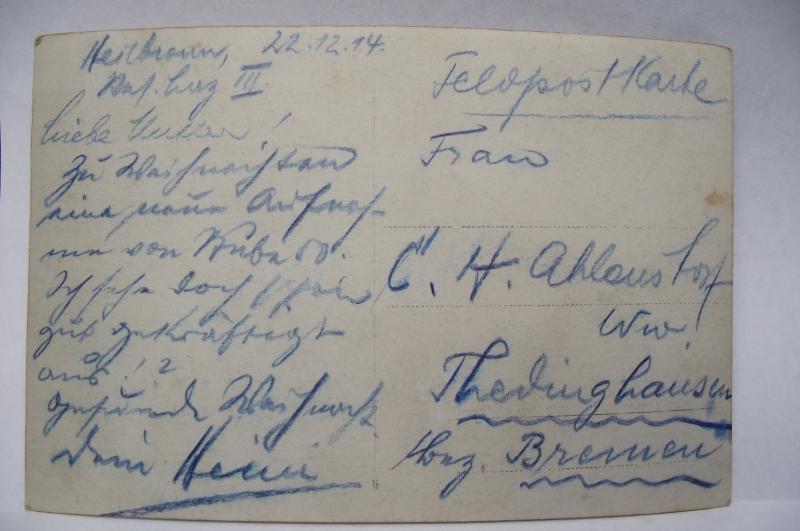 Heilbronn, 22.12.14.
Res. Laz III.
Liebe Mutter!
Zu Weihnachten
eine neue Aufnah-
me von
Ich sehe doch schon
gut gekräftigt
aus!?
Gesunde Weihnacht.
Dein Heini
Feldpostkarte
Frau
C. H. Ahlanstorf
Ww.
Thedinghausen
bez. Bremen